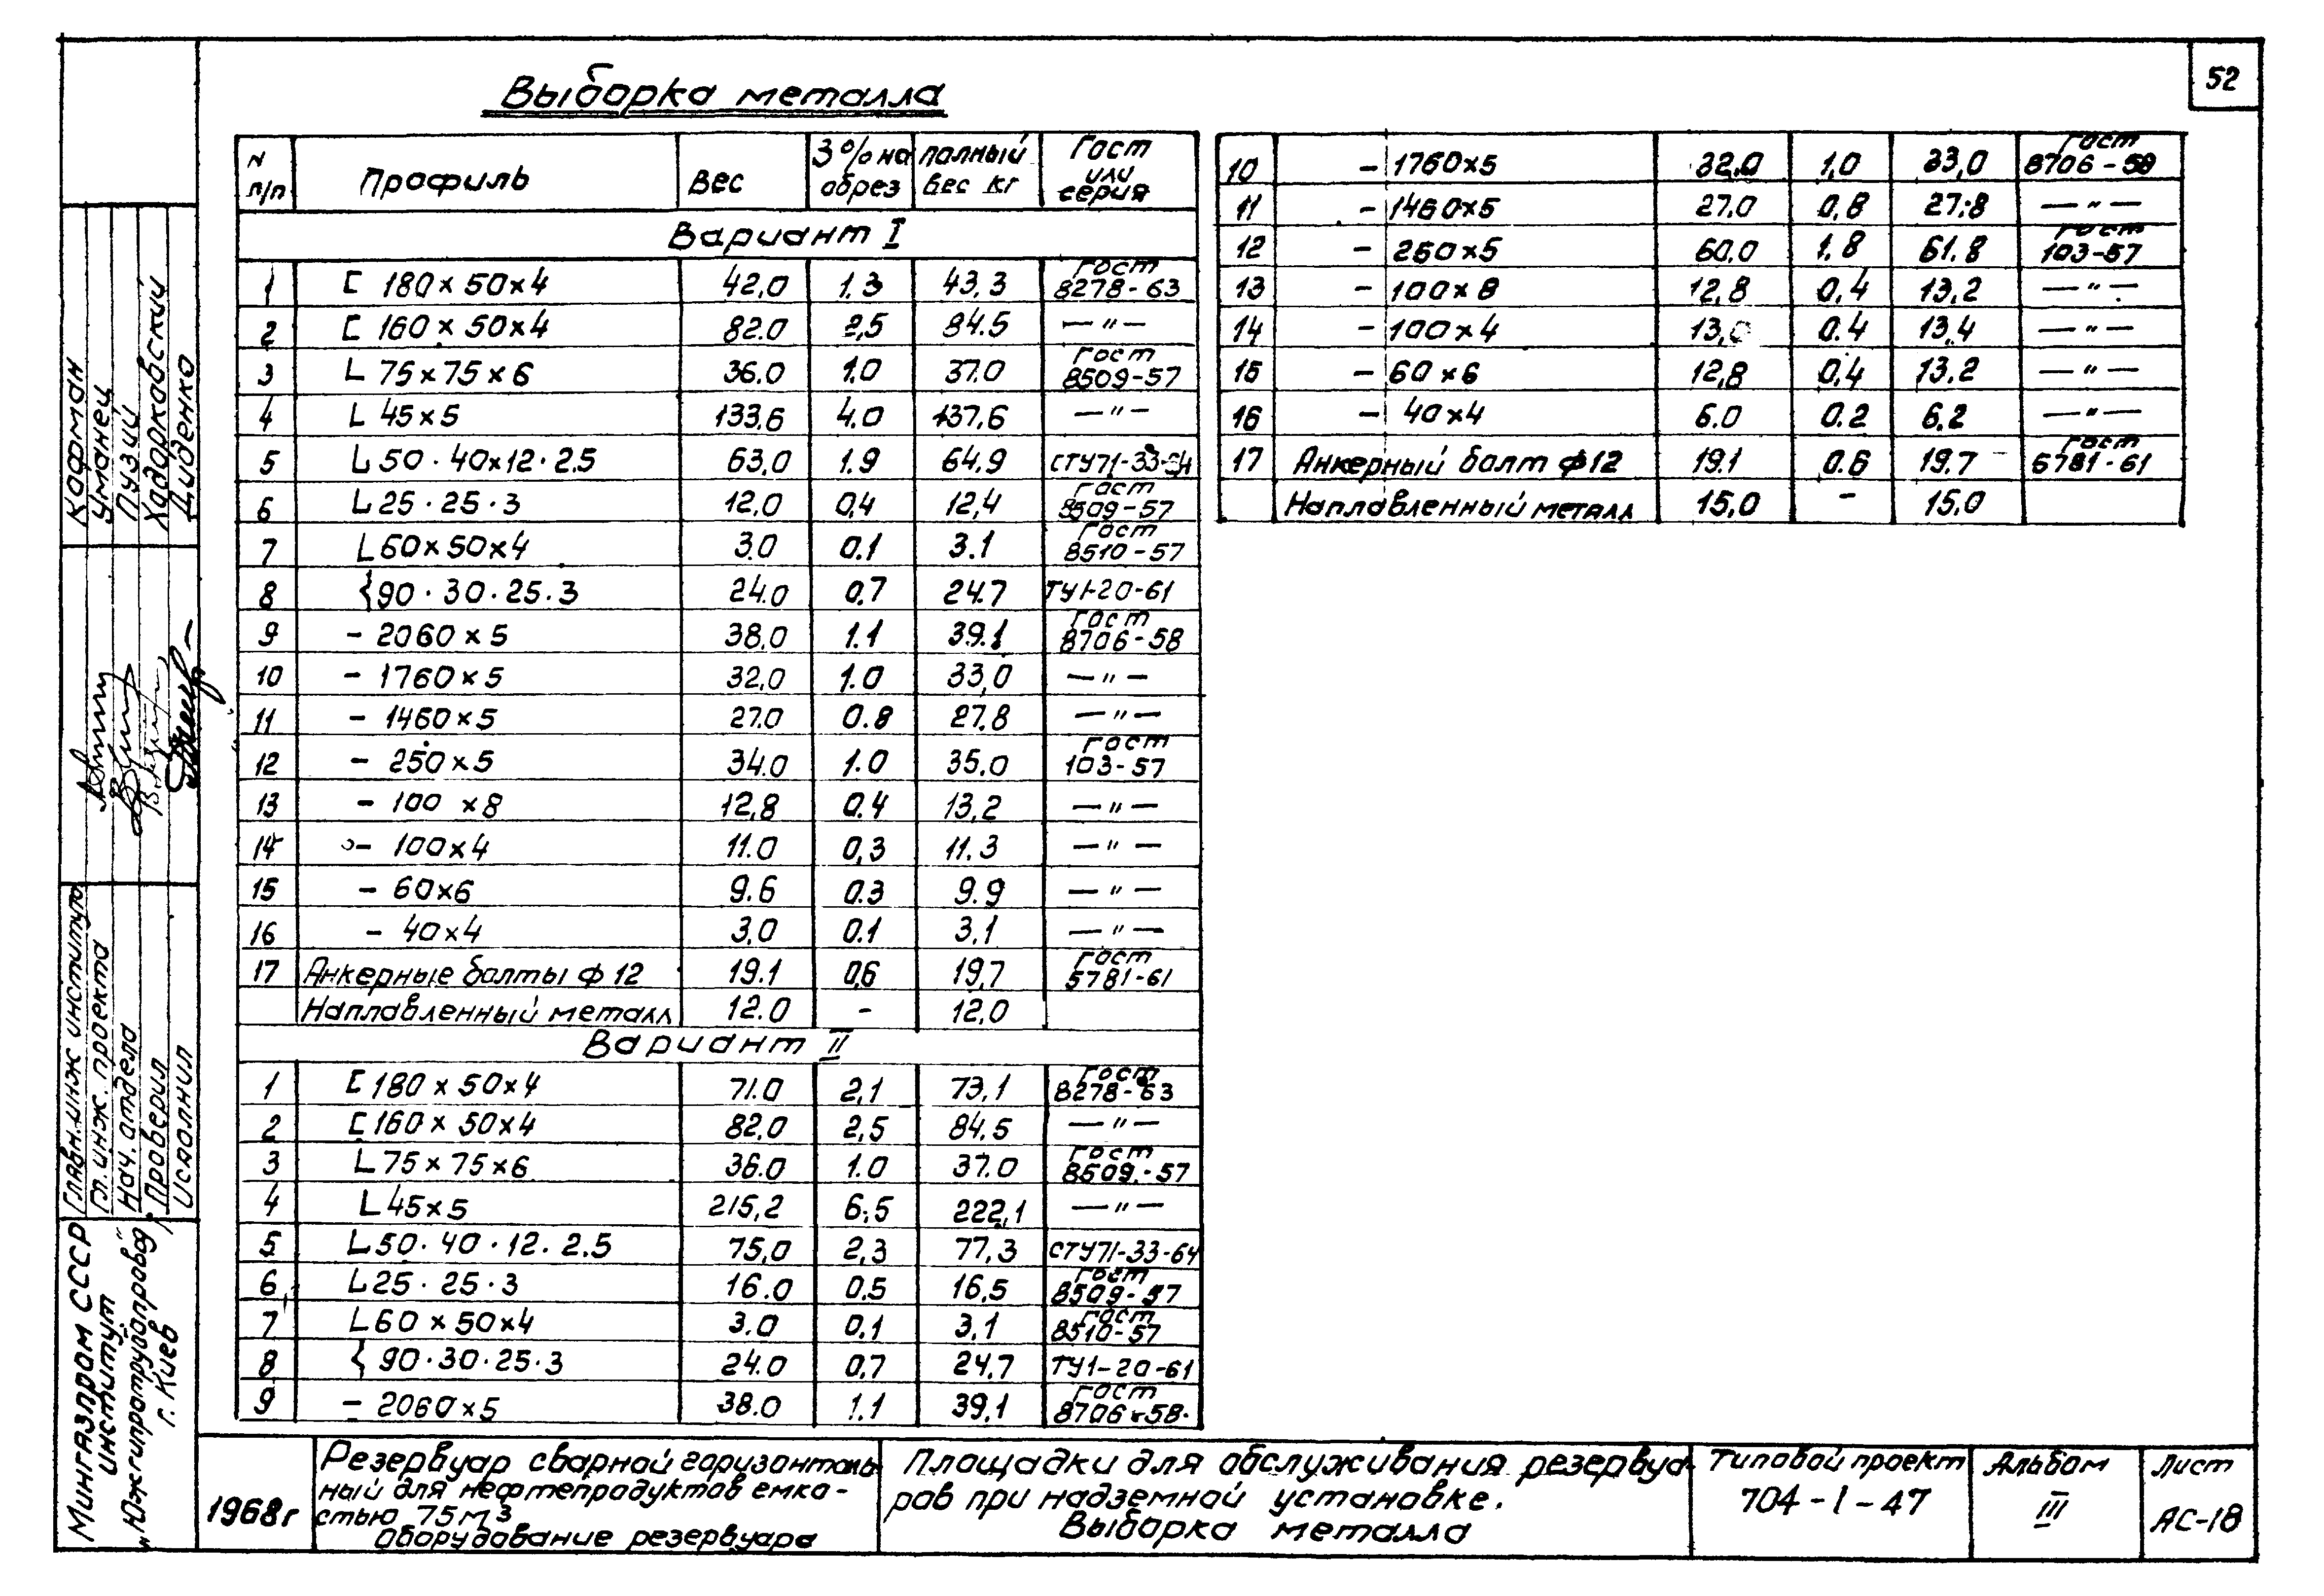 52
Выборка металла
N п/п | Профиль | Вес | 3% на обрез | полный вес кг | Гост или серия
Вариант I
1 | [ 180×50×4 | 42,0 | 1.3 | 43,3 | Гост 8278-63
2 | [ 160×50×4 | 82.0 | 2,5 | 84.5 | —"—
3 | L 75×75×6 | 36.0 | 1.0 | 37.0 | Гост 8509-57
4 | L 45×5 | 133,6 | 4.0 | 137,6 | —"—
5 | L 50·40×12·2.5 | 63,0 | 1.9 | 64,9 | СТУ71-33-64
6 | L 25·25·3 | 12,0 | 0,4 | 12,4 | Гост 8509-57
7 | L 60×50×4 | 3.0 | 0.1 | 3.1 | Гост 8510-57
8 | { 90·30·25·3 | 24.0 | 0,7 | 24.7 | ТУ1-20-61
9 | - 2060×5 | 38,0 | 1.1 | 39.1 | Гост 8706-58
10 | - 1760×5 | 32,0 | 1.0 | 33,0 | —"—
11 | - 1460×5 | 27.0 | 0.8 | 27.8 | —"—
12 | - 250×5 | 34.0 | 1.0 | 35.0 | Гост 103-57
13 | - 100×8 | 12,8 | 0.4 | 13,2 | —"—
14 | - 100×4 | 11.0 | 0,3 | 11.3 | —"—
15 | - 60×6 | 9.6 | 0.3 | 9.9 | —"—
16 | - 40×4 | 3,0 | 0.1 | 3,1 | —"—
17 | Анкерные болты ф12 | 19.1 | 0,6 | 19,7 | Гост 5781-61
Наплавленный металл | 12.0 | - | 12,0
Вариант II
1 | [ 180×50×4 | 71.0 | 2,1 | 73,1 | Гост 8278-63
2 | [ 160×50×4 | 82,0 | 2,5 | 84,5 | —"—
3 | L 75×75×6 | 36.0 | 1.0 | 37.0 | Гост 8509-57
4 | L 45×5 | 215,2 | 6,5 | 222,1 | —"—
5 | L 50·40·12·2.5 | 75,0 | 2,3 | 77,3 | СТУ71-33-64
6 | L 25·25·3 | 16.0 | 0,5 | 16,5 | Гост 8509-57
7 | L 60×50×4 | 3.0 | 0,1 | 3,1 | Гост 8510-57
8 | { 90·30·25·3 | 24.0 | 0,7 | 24,7 | ТУ1-20-61
9 | - 2060×5 | 38.0 | 1.1 | 39,1 | Гост 8706-58
10 | - 1760×5 | 32.0 | 1,0 | 33,0 | Гост 8706-58
11 | - 1460×5 | 27.0 | 0,8 | 27.8 | —"—
12 | - 250×5 | 60,0 | 1.8 | 61.8 | Гост 103-57
13 | - 100×8 | 12,8 | 0,4 | 13,2 | —"—
14 | - 100×4 | 13,0 | 0.4 | 13,4 | —"—
15 | - 60×6 | 12,8 | 0,4 | 13.2 | —"—
16 | - 40×4 | 6.0 | 0.2 | 6.2 | —"—
17 | Анкерный болт ф12 | 19.1 | 0.6 | 19.7 | Гост 5781-61
Наплавленный металл | 15,0 | - | 15,0
Кофман
Уманец
Пузий
Ходорковский
Диденко
Главн. инж института
Гл. инж. проекта
Нач. отдела
Проверил
Исполнил
Мингазпром СССР
институт
„Южгипротрубопровод"
г. Киев
1968г
Резервуар сварной горизонталь-
ный для нефтепродуктов емко-
стью 75м³
Оборудование резервуара
Площадки для обслуживания резервуа-
ров при надземной установке.
Выборка металла
Типовой проект
704-1-47
Альбом
III
Лист
АС-18